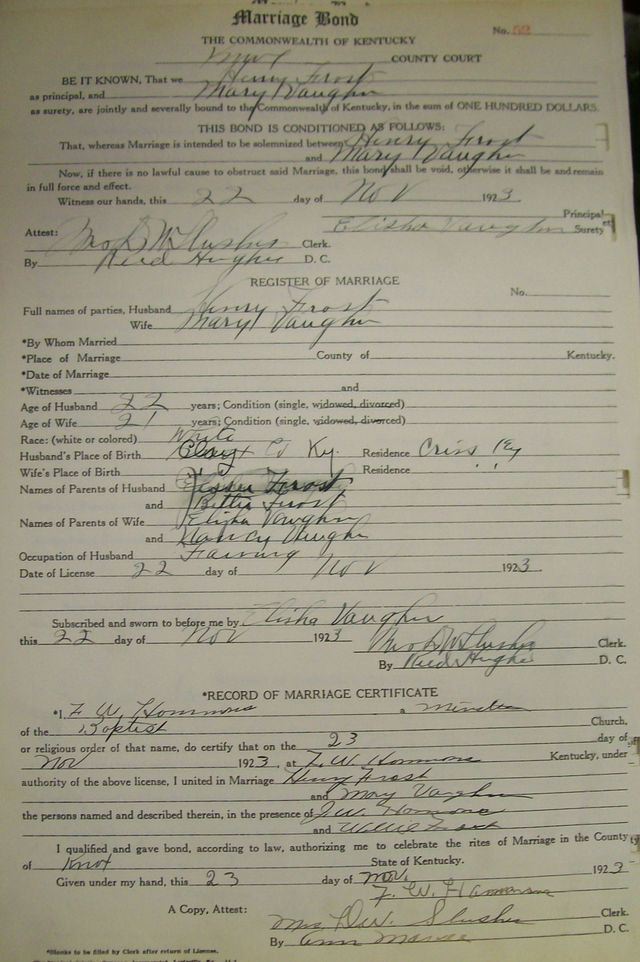 Marriage Bond
No. 52
THE COMMONWEALTH OF KENTUCKY
Knox COUNTY COURT
BE IT KNOWN, That we Henry Frost
as principal, and Mary Vaughn
as surety, are jointly and severally bound to the Commonwealth of Kentucky, in the sum of ONE HUNDRED DOLLARS.
THIS BOND IS CONDITIONED AS FOLLOWS:
That, whereas Marriage is intended to be solemnized between Henry Frost
and Mary Vaughn
Now, if there is no lawful cause to obstruct said Marriage, this bond shall be void, otherwise it shall be and remain
in full force and effect.
Witness our hands, this 22 day of Nov 1923
Principal
Elisha Vaughn Surety
Attest:
Mrs D W Slusher Clerk.
By Reed Hughes D. C.
REGISTER OF MARRIAGE
No.
Full names of parties, Husband Henry Frost
Wife Mary Vaughn
*By Whom Married
*Place of Marriage County of Kentucky.
*Date of Marriage
*Witnesses and
Age of Husband 22 years; Condition (single, widowed, divorced)
Age of Wife 21 years; Condition (single, widowed, divorced)
Race: (white or colored) White
Husband's Place of Birth Clay Co Ky. Residence Ky
Wife's Place of Birth Residence " "
Names of Parents of Husband Frost
and Frost
Names of Parents of Wife Elisha Vaughn
and Nancy Vaughn
Occupation of Husband Farming
Date of License 22 day of Nov 1923.
Subscribed and sworn to before me by Elisha Vaughn
this 22 day of Nov 1923
Mrs D W Slusher Clerk.
By Reed Hughes D. C.
*RECORD OF MARRIAGE CERTIFICATE
*I, F. W. Hammons a Minister
of the Baptist Church.
or religious order of that name, do certify that on the 23 day of
Nov 1923, at F. W. Hammons Kentucky, under
authority of the above license, I united in Marriage Henry Frost
and Mary Vaughn
the persons named and described therein, in the presence of J. W. Hammons
and Willie Frost
I qualified and gave bond, according to law, authorizing me to celebrate the rites of Marriage in the County
of Knox State of Kentucky.
Given under my hand, this 23 day of Nov. 1923
F. W. Hammons
A Copy, Attest:
Mrs. D. W. Slusher Clerk.
By Ann D. C.
*Blanks to be filled by Clerk after return of License.